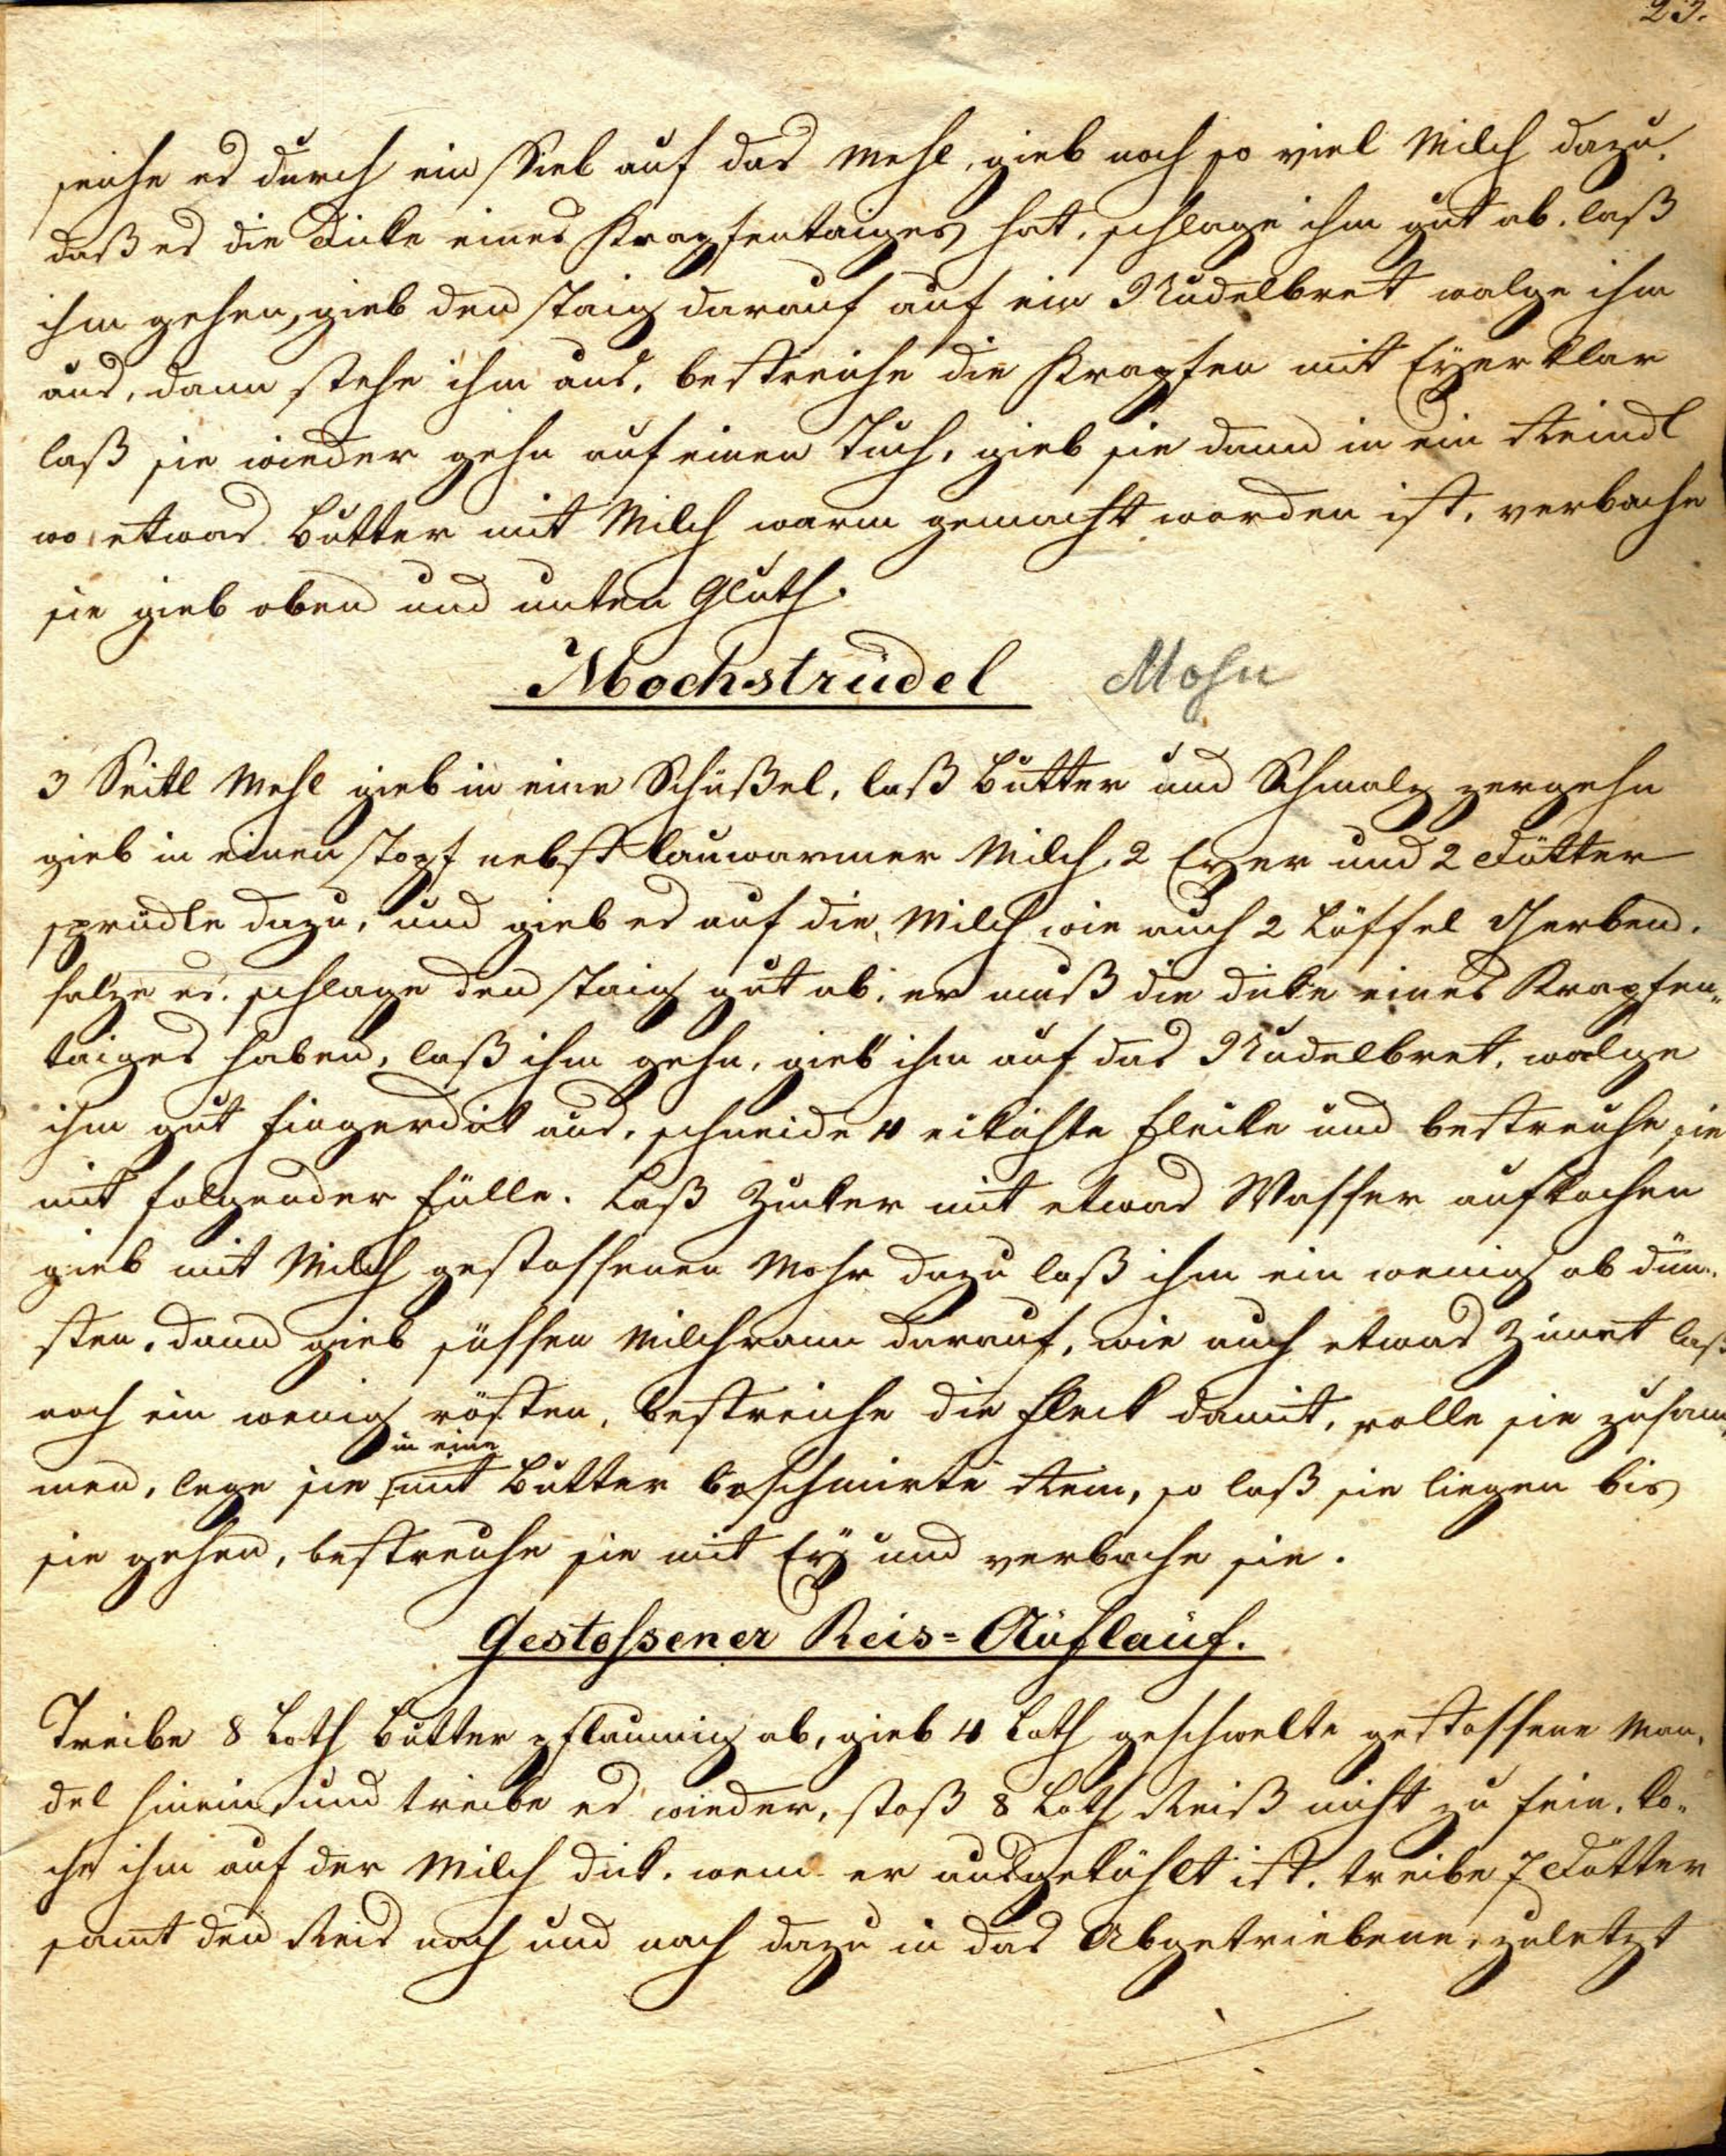 23.
seihe es durch ein Sieb auf das Mehl, gieb noch so viel Milch dazu,
daß es die Dicke eines Krapfentaiges hat, schlage ihm gut ab. laß
ihm gehen, gieb den Taig darauf auf ein Nudelbret walge ihm
aus, dann steche ihm aus, bestreiche die Krapfen mit Eyerklar
laß sie wieder gehn auf einen Tuch, gieb sie dann in ein Reindl
wo etwas Butter mit Milch warm gemacht worden ist, verbache
sie gieb oben und unten Gluth.
Mochstrudel Mohn
3 Seitl Mehl gieb in eine Schüßel, laß Butter und Schmalz zergehn
gieb in einen Topf nebst lauwarmer Milch, 2 Eyer und 2 Dötter
sprudle dazu, und gieb es auf die Milch wie auch 2 Löffel Gerben.
salze es. schlage den Taig gut ab, er muß die dicke eines Krapfen-
taiges haben, laß ihm gehn, gieb ihm auf das Nudelbret, walge
ihm gut fingerdick aus, schneide 4 eckichte Flecke und bestreiche sie
mit folgender Fülle. Laß Zucker mit etwas Wasser aufkochen
gieb mit Milch gestossenen Mohn dazu laß ihm ein wenig ab dün-
sten, dann gieb süssen Milchram darauf, wie auch etwas Zimet laß
noch ein wenig rösten, bestreiche die Fleck damit, rolle sie zusam-
in eine
men, lege sie mit Butter beschmirte Rein, so laß sie liegen bis
sie gehen, bestreiche sie mit Ey und verbache sie.
Gestossener Reis=Auflauf.
Treibe 8 Loth Butter pflaumig ab, gieb 4 Loth geschwelte gestossene Man-
del hinein und treibe es wieder, stoß 8 Loth Reiß nicht zu fein. ko-
che ihm auf der Milch dick. wenn er ausgekühlt ist. treibe 7 Dötter
samt den Reis nach und nach dazu in das Abgetriebene, zuletzt